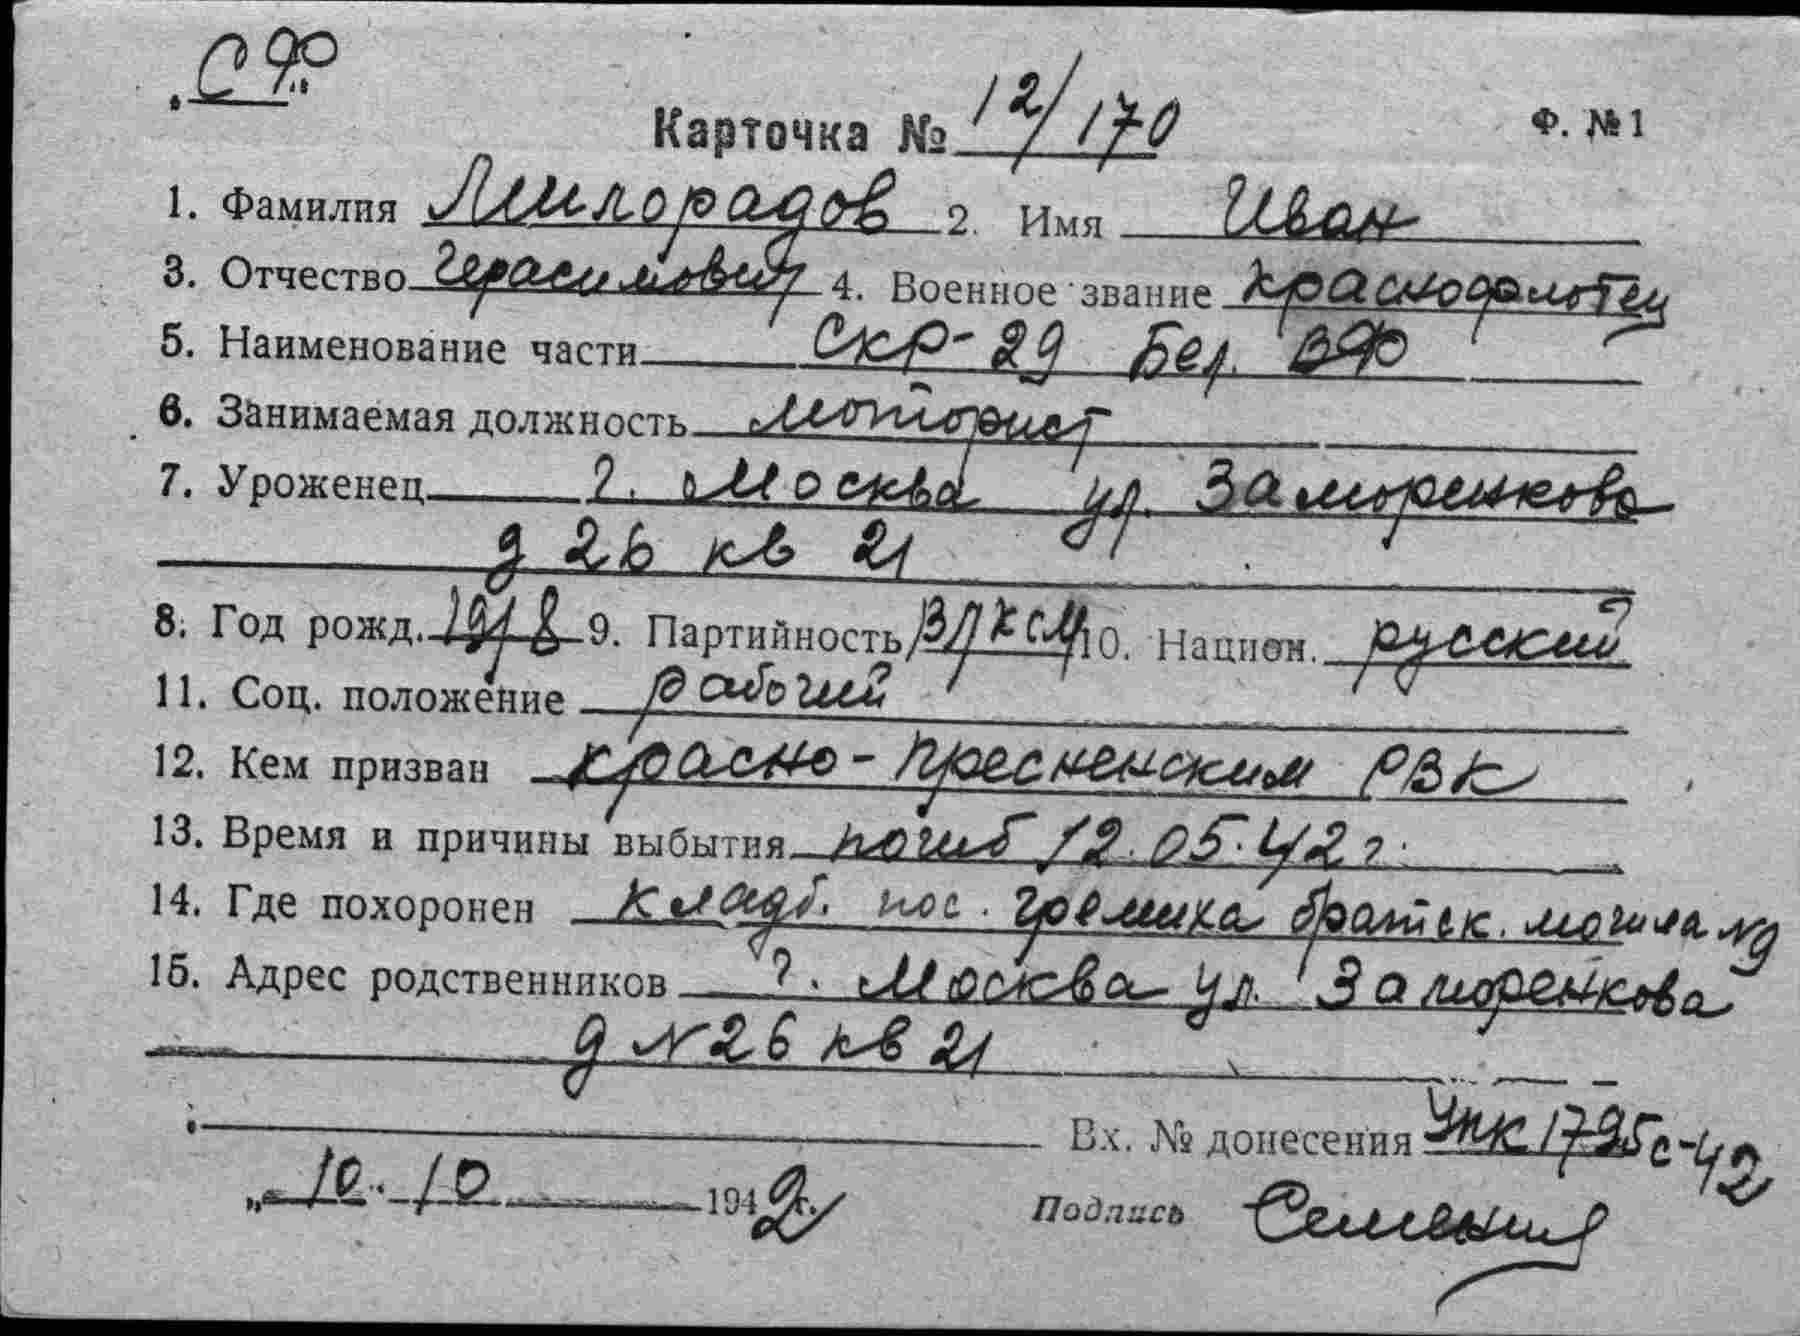 СФ
Карточка № 12/170 Ф. № 1
1. Фамилия Милорадов 2. Имя Иван
3. Отчество Герасимович 4. Военное звание краснофлотец
5. Наименование части СКР-29 Бел. ВФ
6. Занимаемая должность моторист
7. Уроженец г. Москва ул. Заморенкова
д 26 кв 21
8. Год рожд. 1918 9. Партийность ВЛКСМ 10. Национ. русский
11. Соц. положение рабочий
12. Кем призван Красно-Пресненским РВК
13. Время и причины выбытия погиб 12.05.42 г.
14. Где похоронен кладб. пос. Гремиха братск. могила №9
15. Адрес родственников г. Москва ул. Заморенкова
д №26 кв 21
Вх. № донесения 1795с-42
„10" 10 1942 г. Подпись